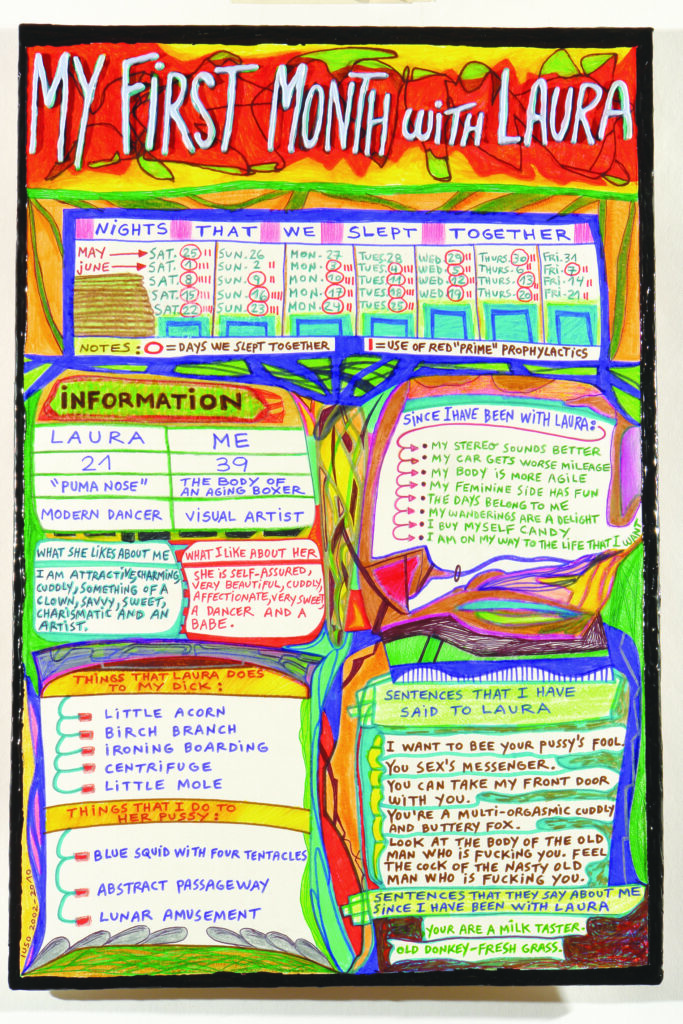 MY FIRST MONTH WITH LAURA
NIGHTS THAT WE SLEPT TOGETHER
MAY SAT. 25 SUN. 26 MON. 27 TUES. 28 WED. 29 THURS. 30 FRI. 31
JUNE SAT. 1 SUN. 2 MON. 3 TUES. 4 WED. 5 THURS. 6 FRI. 7
SAT. 8 SUN. 9 MON. 10 TUES. 11 WED. 12 THURS. 13 FRI. 14
SAT. 15 SUN. 16 MON. 17 TUES. 18 WED. 19 THURS. 20 FRI. 21
SAT. 22 SUN. 23 MON. 24 TUES. 25
NOTES: O = DAYS WE SLEPT TOGETHER I = USE OF RED "PRIME" PROPHYLACTICS
INFORMATION
LAURA ME
21 39
"PUMA NOSE" THE BODY OF
AN AGING BOXER
MODERN DANCER VISUAL ARTIST
WHAT SHE LIKES ABOUT ME
I AM ATTRACTIVE, CHARMING,
CUDDLY, SOMETHING OF A
CLOWN, SAVVY, SWEET,
CHARISMATIC AND AN
ARTIST.
WHAT I LIKE ABOUT HER
SHE IS SELF-ASSURED,
VERY BEAUTIFUL, CUDDLY,
AFFECTIONATE, VERY SWEET
A DANCER AND A
BABE.
SINCE I HAVE BEEN WITH LAURA:
• MY STEREO SOUNDS BETTER
• MY CAR GETS WORSE MILEAGE
• MY BODY IS MORE AGILE
• MY FEMININE SIDE HAS FUN
• THE DAYS BELONG TO ME
• MY WANDERINGS ARE A DELIGHT
• I BUY MYSELF CANDY
• I AM ON MY WAY TO THE LIFE THAT I WANT
THINGS THAT LAURA DOES
TO MY DICK:
LITTLE ACORN
BIRCH BRANCH
IRONING BOARDING
CENTRIFUGE
LITTLE MOLE
THINGS THAT I DO TO
HER PUSSY:
BLUE SQUID WITH FOUR TENTACLES
ABSTRACT PASSAGEWAY
LUNAR AMUSEMENT
IUSO 2002-2010
SENTENCES THAT I HAVE
SAID TO LAURA
I WANT TO BEE YOUR PUSSY'S FOOL.
YOU SEX'S MESSENGER.
YOU CAN TAKE MY FRONT DOOR
WITH YOU.
YOU'RE A MULTI-ORGASMIC CUDDLY
AND BUTTERY FOX.
LOOK AT THE BODY OF THE OLD
MAN WHO IS FUCKING YOU. FEEL
THE COCK OF THE NASTY OLD
MAN WHO IS FUCKING YOU.
SENTENCES THAT THEY SAY ABOUT ME
SINCE I HAVE BEEN WITH LAURA
YOUR ARE A MILK TASTER.
OLD DONKEY-FRESH GRASS.